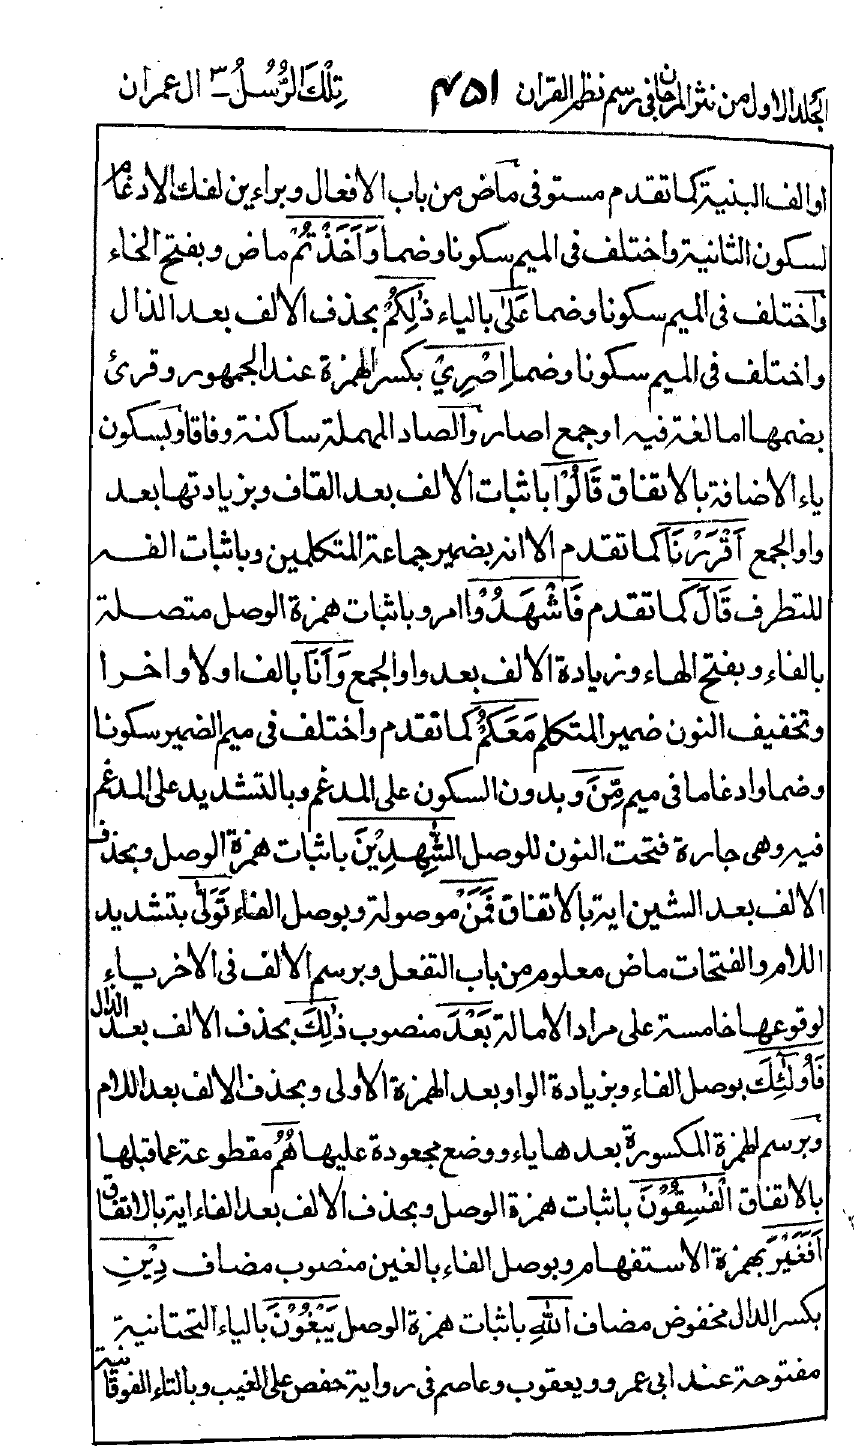 الجلد الاول من نثر المرجان في رسم نظم القران ٤٥١ تِلْكَ الرُّسُلُ ٣ ال عمران
او الف البنية كما تقدم مستوفى ماض من باب الافعال وبراءين لفك الادغام
لسكون الثانية واختلف فى الميم سكونا وضما وَاَخَذْتُمْ ماض وبفتح الخاء
واختلف فى الميم سكونا وضما عَلٰى بالياء ذٰلِكُمْ بحذف الالف بعد الذال
واختلف فى الميم سكونا وضما اِصْرِيْ بكسر الهمزة عند الجمهور وقرئ
بضمها اما لغة فيه او جمع اصار والصاد المهملة ساكنة وفاقا وبسكون
ياء الاضافة بالاتفاق قَالُوْا باثبات الالف بعد القاف وبزيادتها بعد
واو الجمع اَقْرَرْنَا كما تقدم الا انه بضمير جماعة المتكلمين وباثبات الفه
للتطرف قَالَ كما تقدم فَاشْهَدُوْا امر وباثبات همزة الوصل متصلة
بالفاء وبفتح الهاء وزيادة الالف بعد واو الجمع وَاَنَا بالف اولا واخرا
وتخفيف النون ضمير المتكلم مَعَكُمْ كما تقدم واختلف فى ميم الضمير سكونا
وضما وادغاما فى ميم مِّنَ وبدون السكون على المدغم وبالتشديد على المدغم
فيه وهى جارة فتحت النون للوصل الشّٰهِدِيْنَ باثبات همزة الوصل وبحذف
الالف بعد الشين اية بالاتفاق فَمَنْ موصولة وبوصل الفاء تَوَلّٰى بتشديد
اللام والفتحات ماض معلوم من باب التفعل وبرسم الالف فى الاخر ياء
لوقوعها خامسة على مراد الامالة بَعْدَ منصوب ذٰلِكَ بحذف الالف بعد الذال
فَاُولٰٓئِكَ بوصل الفاء وبزيادة الواو بعد الهمزة الاولى وبحذف الالف بعد اللام
وبرسم الهمزة المكسورة بعدها ياء ووضع مجعودة عليها هُمُ مقطوعة عما قبلها
بالاتفاق الْفٰسِقُوْنَ باثبات همزة الوصل وبحذف الالف بعد الفاء اية بالاتفاق
اَفَغَيْرَ بهمزة الاستفهام وبوصل الفاء بالغين منصوب مضاف دِيْنِ
بكسر الدال مخفوض مضاف اللّٰهِ باثبات همزة الوصل يَبْغُوْنَ بالياء التحتانية
مفتوحة عند ابى عمرو ويعقوب وعاصم فى رواية حفص على الغيب وبالتاء الفوقانية